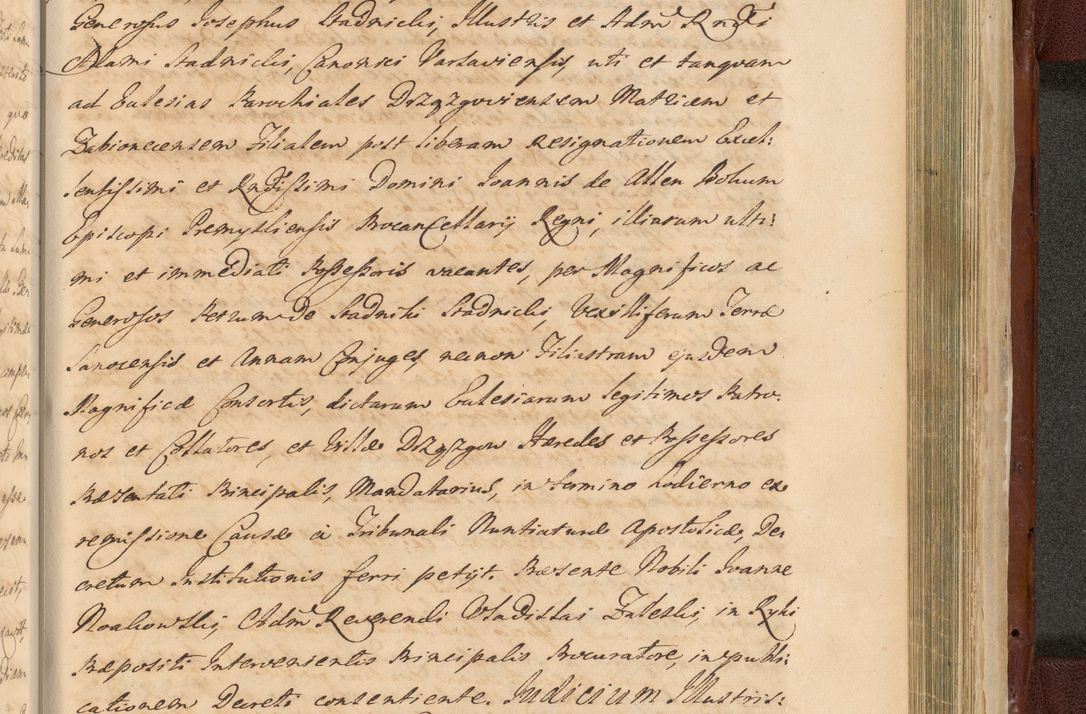 Generosus Josephus Stadnicki, Illustris et Adm Rndi
Adami Stadnicki, Canonici Varsaviensis, uti et tanquam
ad Ecclesias Parochiales Drzązgoviensem Matricem et
Żabionecensem Filialem post liberam Resignationem Excel:
lentissimi et Rndissimi Domini Joannis de Alten Bokum
Episcopi Premysliensis Procancellarij Regni, illiarum ulti:
mi et immediati Possessoris vacantes, per Magnificos ac
Generosos Petrum de Stadniki Stadnicki, Vexilliferum Terræ
Sanocensis et Annam Conjuges, necnon Filiastram ejusdem
Magnificæ Consortis, dictarum Ecclesiarum legitimos Patro:
nos et Collatores, et Villæ Drzązgow Hæredes et Possessores
Præsentati Principalis, Mandatarius, in termino hodierno ex
remissione Causæ à Tribunali Nuntiaturæ Apostolicæ, De:
cretum Institutionis ferri petijt. Præsente Nobili Joanne
Noakowski, Adm Reverendi Vladislai Zaleski, in Ryki
Præpositi Intervenientis Principalis Procuratore, in publi:
cationem Decreti consentiente. Judicium Illustris: